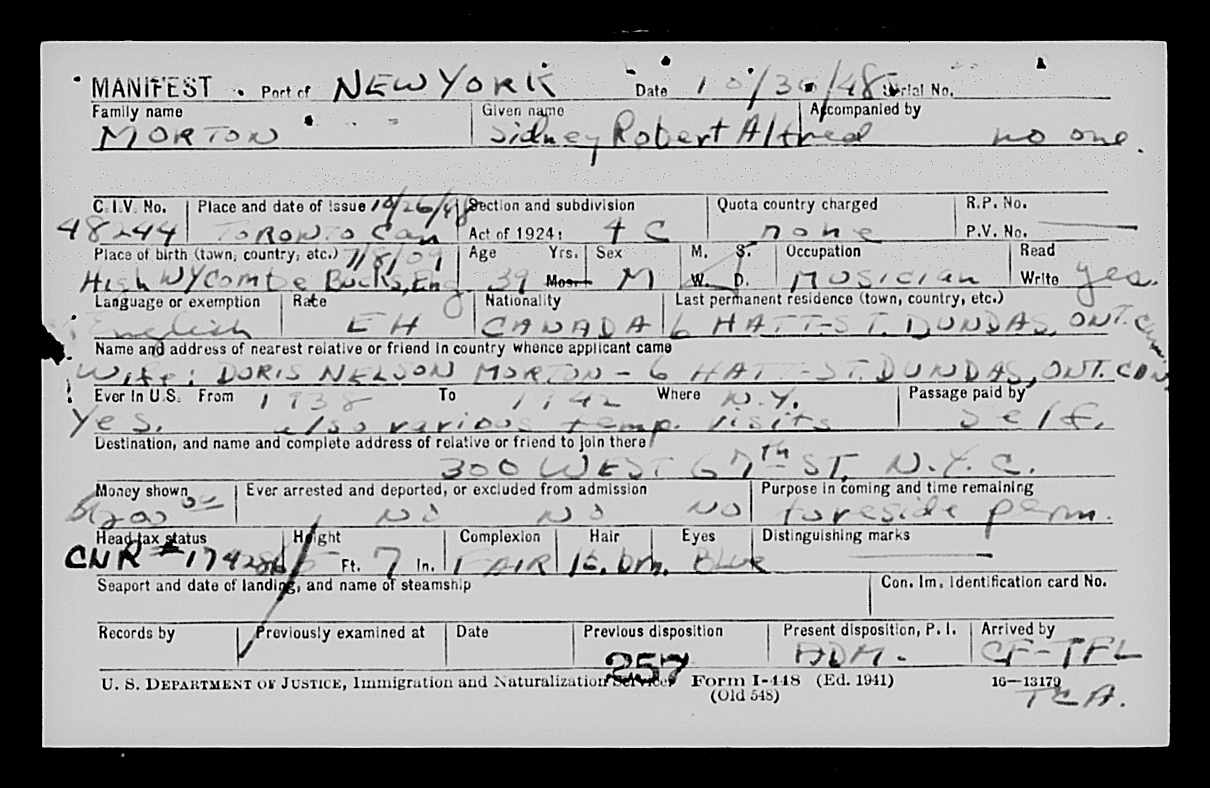 MANIFEST Port of NEW YORK Date 10/30/48 Serial No.
Family name Given name Accompanied by
MORTON Sidney Robert Alfred no one.
C.I.V. No. Place and date of issue 10/26/48 Section and subdivision Quota country charged R.P. No.
48244 TORONTO Can Act of 1924: 4 C none P.V. No.
Place of birth (town, country, etc.) 7/8/09 Age Yrs. Sex M. S. Occupation Read
High WYCombe Bucks, Eng 39 Mos. M W. D. MUSICIAN Write yes.
Language or exemption Race Nationality Last permanent residence (town, country, etc.)
English EH CANADA 6 HATT-ST. DUNDAS, ONT. Can.
Name and address of nearest relative or friend in country whence applicant came
Wife: DORIS NELSON MORTON - 6 HATT-ST. DUNDAS, ONT. CAN
Ever in U.S. From 1938 To 1942 Where N.Y. Passage paid by
Yes. also various temp. visits Self.
Destination, and name and complete address of relative or friend to join there
300 WEST 67th ST. N.Y.C.
Money shown Ever arrested and deported, or excluded from admission Purpose in coming and time remaining
NO NO NO to reside perm.
Head tax status Height Complexion Hair Eyes Distinguishing marks
CNR # 5 Ft. 7 In. FAIR lt. brn. BLUE
Seaport and date of landing, and name of steamship Con. Im. Identification card No.
Records by Previously examined at Date Previous disposition Present disposition, P. I. Arrived by
257 ADM. CF-TFL
U. S. DEPARTMENT OF JUSTICE, Immigration and Naturalization Service Form I-448 (Ed. 1941) 16—13179
(Old 548) TCA.